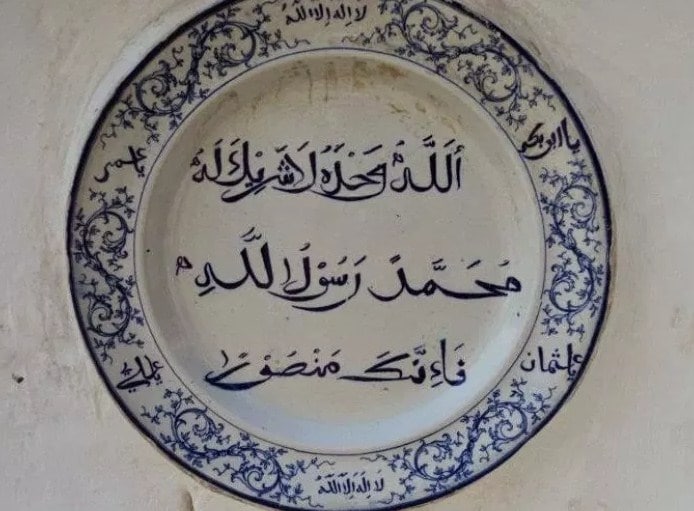 لا إله إلا الله
يا ابوبكر
عمر
أَللَّهُ وَحْدَهُ لَا شَرِيْكَ لَهُ
مُحَمَّدٌ رَسُوْلُ اللَّهِ
فَاءِنَّكَ مَنْصُوْرٌ
عثمان
علي
لَا إِلَهَ إِلَّا اللَّهُ